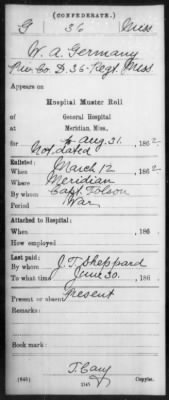 (CONFEDERATE.)
G 36 Miss
W. A. Germany
Pvt Co. D. 36 Regt. Miss
Appears on
Hospital Muster Roll
of
General Hospital
at
Meridian, Miss.,
for to Aug 31., 1862.
Not dated, 186
Enlisted:
When March 12, 1862.
Where Meridian
By whom Capt. Tolson
Period War
Attached to Hospital:
When , 186 .
How employed
Last paid:
By whom J. T. Sheppard
To what time June 30., 186 .
Present or absent Present
Remarks:
Book mark:
T. Cary
Copyist.